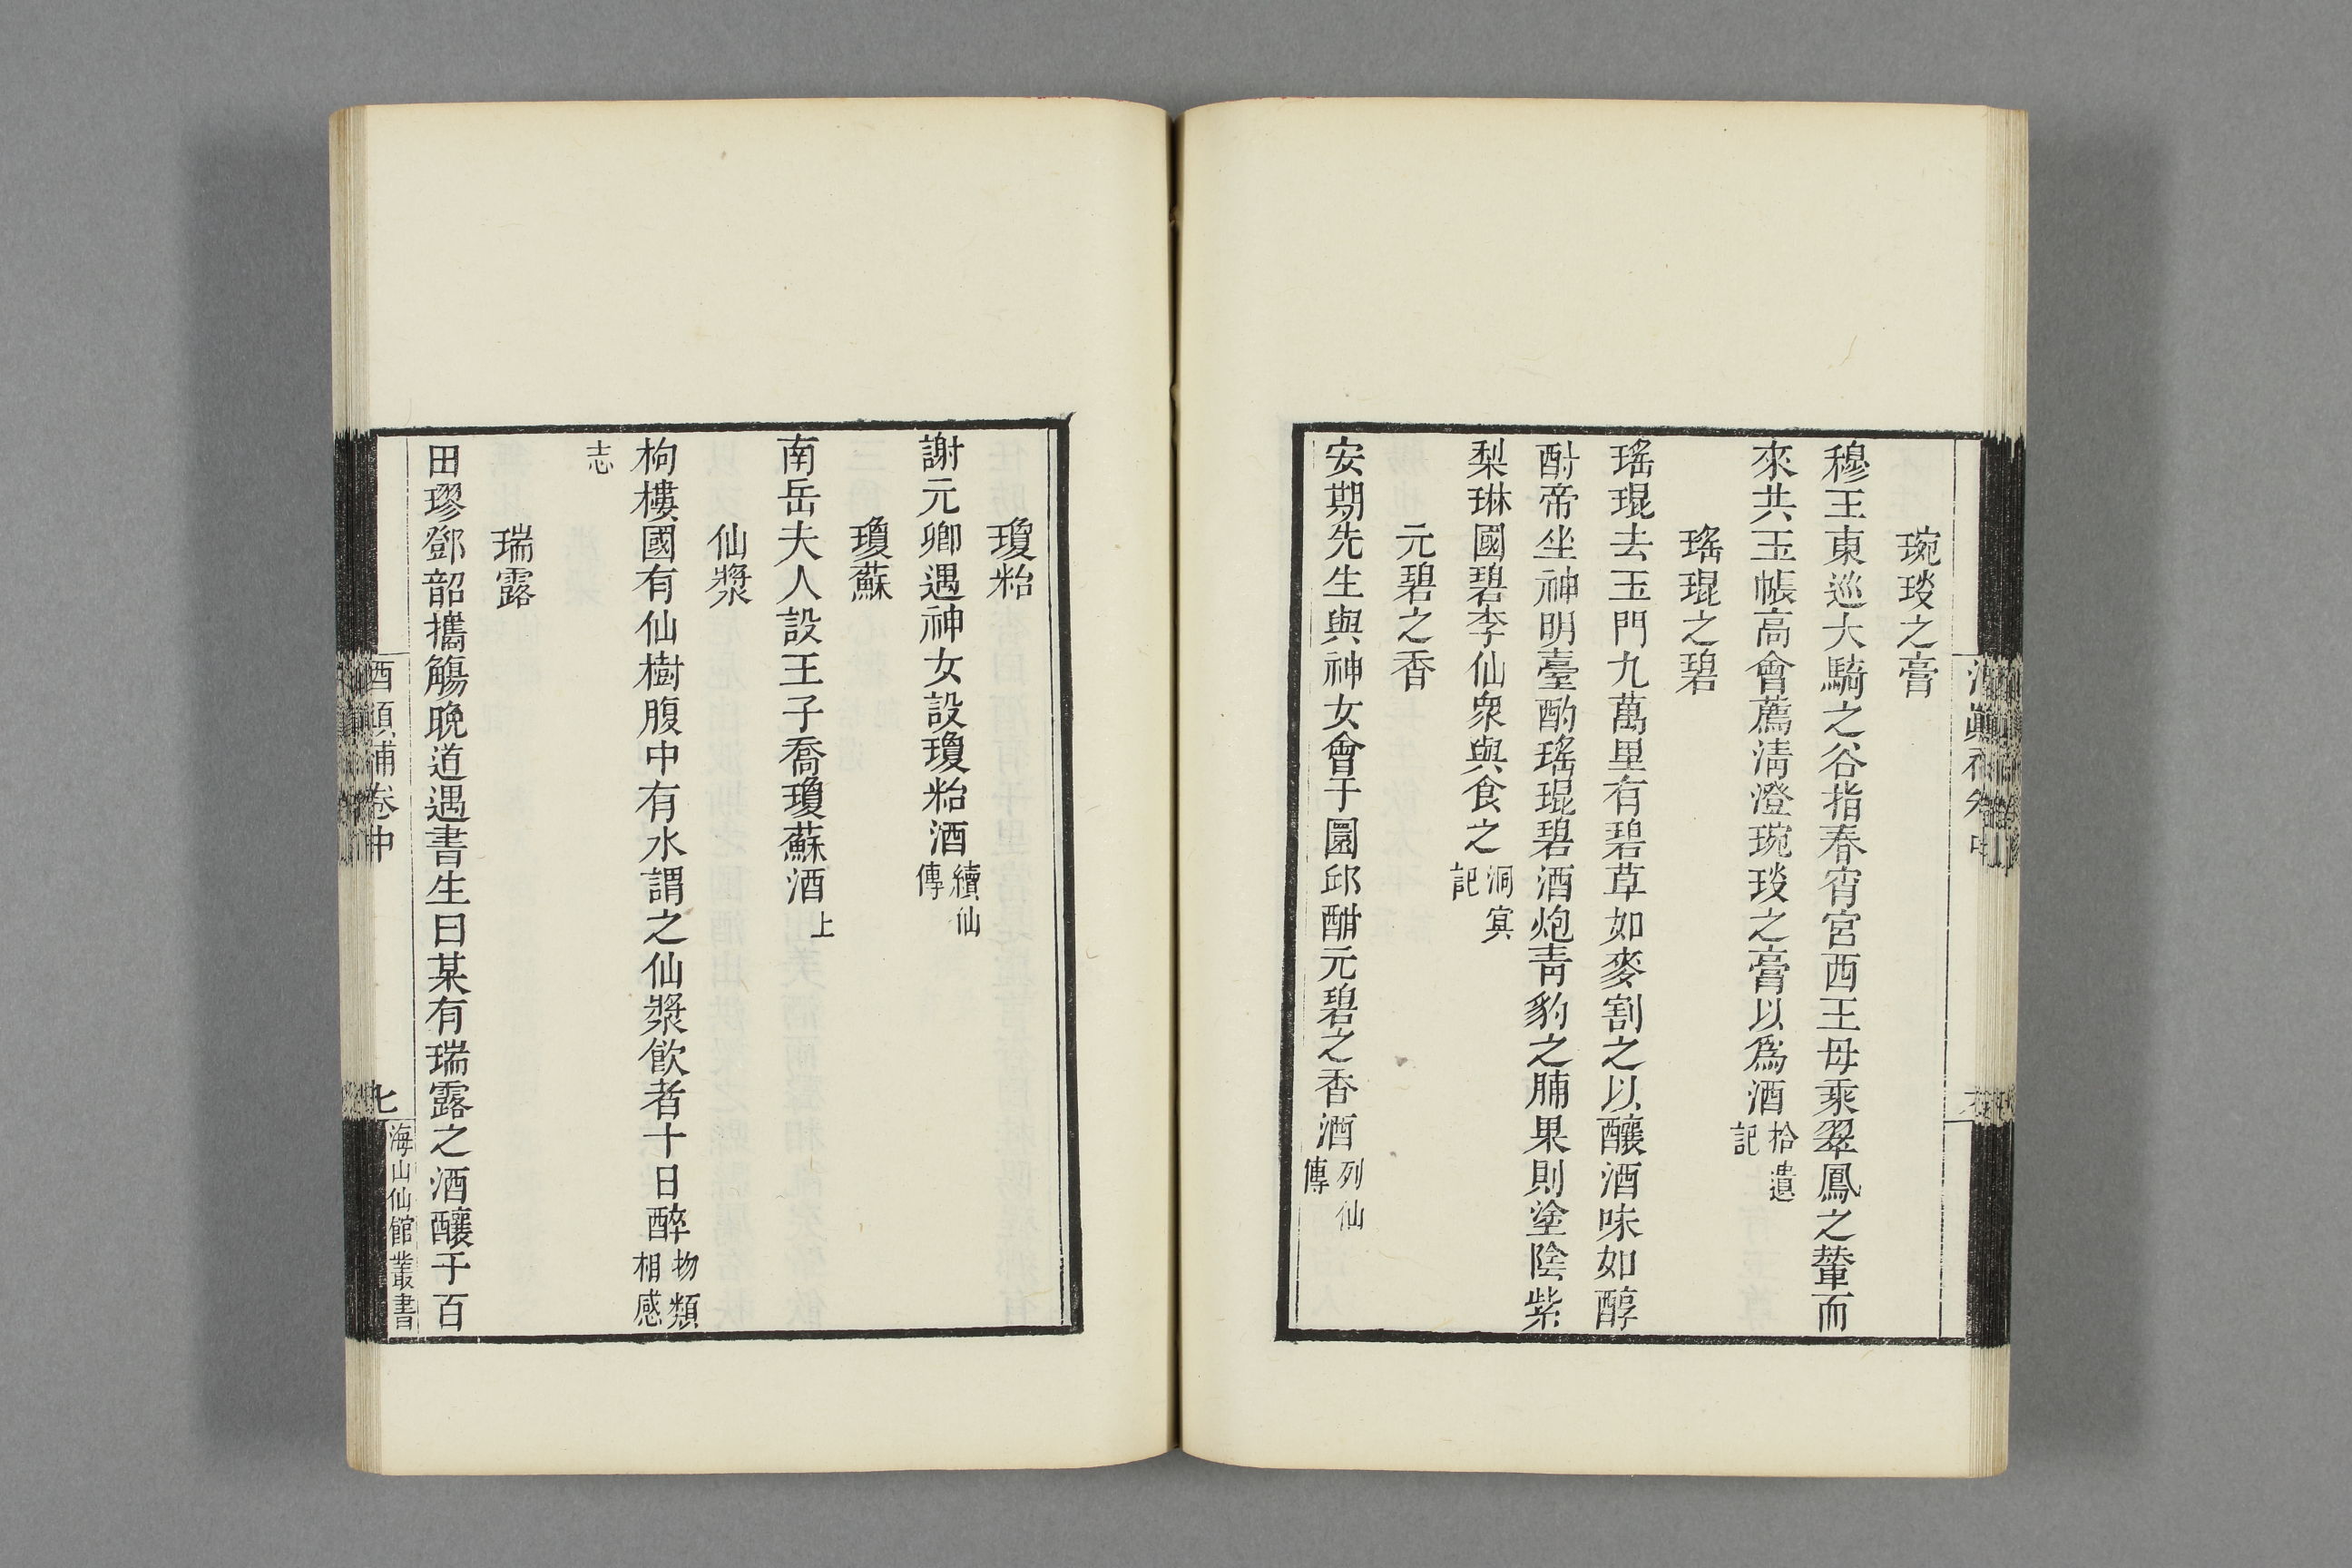 琬琰之膏
穆王東巡大騎之谷指春宵宮西王母乘翠鳳之輦而
來共玉帳高會薦清澄琬琰之膏以爲酒拾遺記
瑤琨之碧
瑤琨去玉門九萬里有碧草如麥割之以釀酒味如醇
酎帝坐神明臺酌瑤琨碧酒炮靑豹之脯果則塗陰紫
梨琳國碧李仙衆與食之洞冥記
元碧之香
安期先生與神女會于圜邱酣元碧之香酒列仙傳
瓊粭
謝元卿遇神女設瓊粭酒續仙傳
瓊蘇
南岳夫人設王子喬瓊蘇酒上
仙漿
枸樓國有仙樹腹中有水謂之仙漿飮者十日醉物類相感
志
瑞露
田璆鄧韶攜觴晚道遇書生曰某有瑞露之酒釀于百
卷中
七
海山仙館叢書